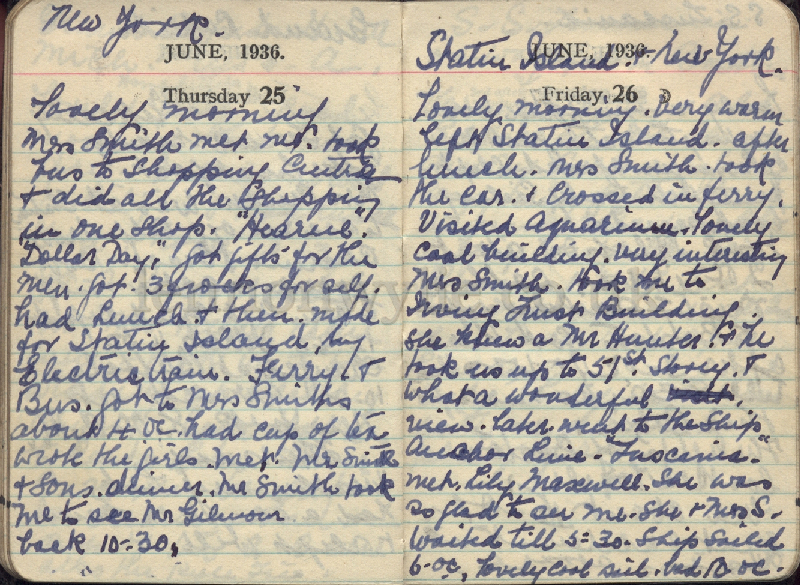 New York.
JUNE, 1936.
Thursday 25
Lovely morning
Mrs Smith met me. took
bus to Shopping Centre
+ did all the Shopping
in one Shop. "Hearns".
"Dollar Day," got gifts for the
men. got. 3 frocks for self.
had Lunch + then. made
for Statin Island, by
Electric train. Ferry. +
Bus. got to Mrs Smiths
about 4 oc. had cup of tea
wrote the girls. met. Mr Smith
+ Sons. dinner. Mr Smith took
me to see Mr Gilmour
back 10-30,
Statin Island. + New York.
JUNE, 1936.
Friday, 26
Lovely morning. Very warm
left Statin Island. after
lunch. Mrs Smith. took
the car. + Crossed in ferry.
Visited Aquarium. Lovely
cool building. very interesting
Mrs Smith. took me to
Irving Trust Building.
she knew a Mr Hunter. + he
took us up to 51st. Storey. +
what a wonderful
view. later went to the Ship
Anchor Line. "Tuscania."
met. Lily Maxwell. She was
so glad to see me. She + Mrs S.
waited till 5-30. Ship sailed
6-oc, Lovely cool sail. bed 10 oc.